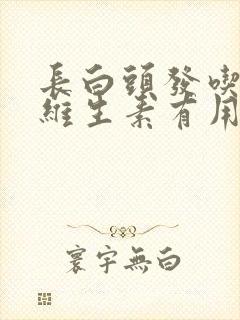 長白頭發喫
維生素有用
寰宇無白